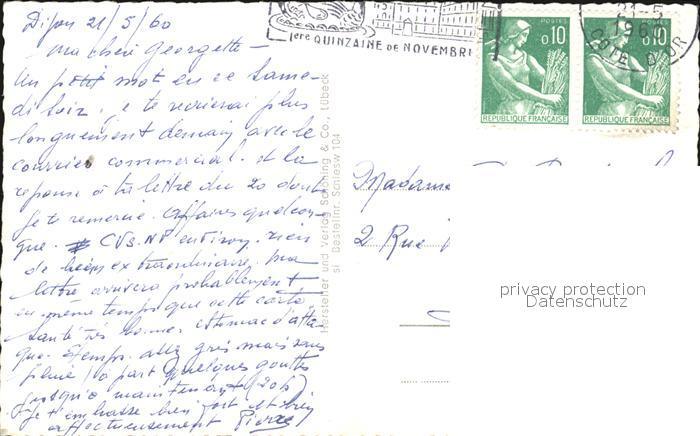 Dijon 21/5/60
ma chère Georgette —
Un petit mot en ce same-
di soir. je te recrirai plus
longuement demain avec le
courrier commercial. et la
reponse à ta lettre du 20 dont
je te remercie. Affaires quelcon-
que. CVs. NP environ. rien
de bien extraordinaire. ma
lettre arrivera probablement
en même temps que cette carte
santé très bonne. estomac d'atta-
que. temps. assez gris mais sans
pluie (à part quelques gouttes
jusqu'à maintenant (20h)
je t'embrasse bien fort et bien
affectueusement Pierre
1ere QUINZAINE DE NOVEMBRE
POSTES
0,10
REPUBLIQUE FRANÇAISE
POSTES
0,10
REPUBLIQUE FRANÇAISE
21-5
1960
COTE D'OR
Hersteller und Verlag Schöning & Co., Lübeck
Bestellnr. Schlesw 104
Madame
2 Rue
privacy protection
Datenschutz